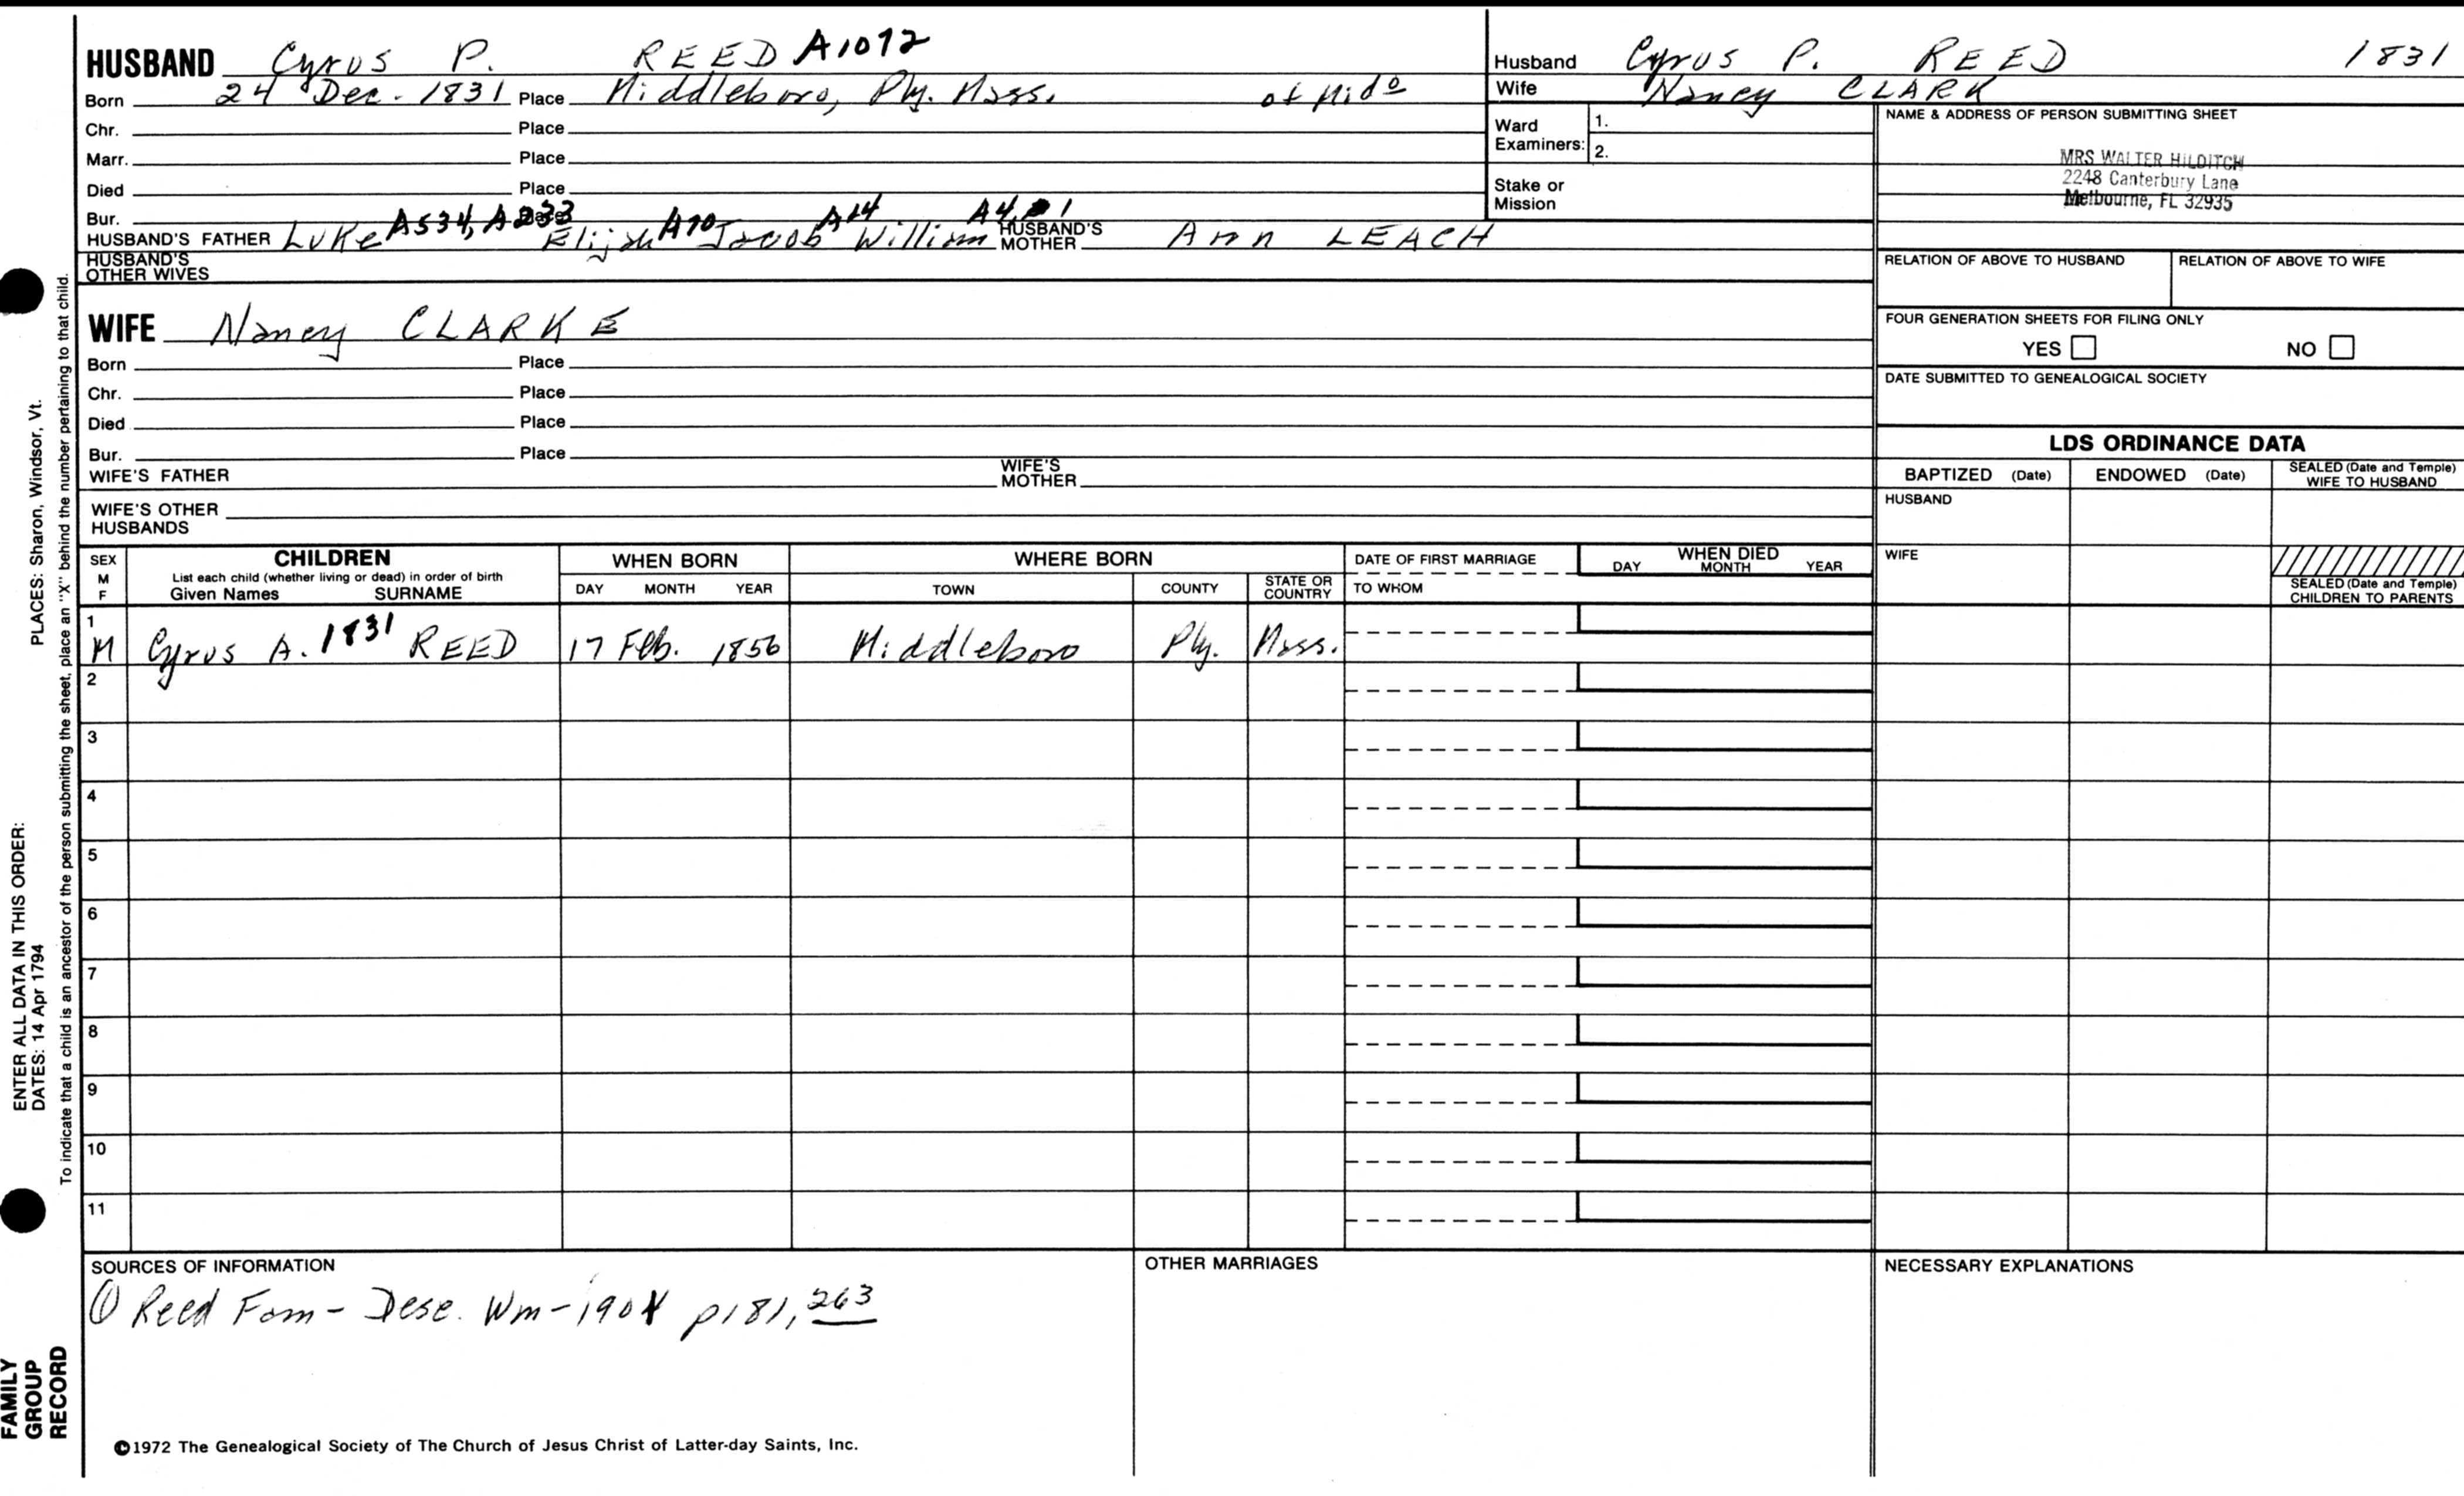 HUSBAND Cyrus P. REED A1072
Born 24 Dec. 1831 Place Middleboro, Ply. Mass. of Mido
Chr. Place
Marr. Place
Died Place
Bur. Place
HUSBAND'S FATHER Luke A534, A233 Elijah A70 Jacob A14 William A4, 1 HUSBAND'S MOTHER Ann LEACH
HUSBAND'S OTHER WIVES
WIFE Nancy CLARKE
Born Place
Chr. Place
Died Place
Bur. Place
WIFE'S FATHER WIFE'S MOTHER
WIFE'S OTHER HUSBANDS
Husband Cyrus P. REED 1831
Wife Nancy CLARK
Ward Examiners: 1.
2.
Stake or Mission
NAME & ADDRESS OF PERSON SUBMITTING SHEET
MRS WALTER HILDITCH
2248 Canterbury Lane
Melbourne, FL 32935
RELATION OF ABOVE TO HUSBAND RELATION OF ABOVE TO WIFE
FOUR GENERATION SHEETS FOR FILING ONLY
YES NO
DATE SUBMITTED TO GENEALOGICAL SOCIETY
LDS ORDINANCE DATA
BAPTIZED (Date) ENDOWED (Date) SEALED (Date and Temple) WIFE TO HUSBAND
HUSBAND
WIFE
SEALED (Date and Temple) CHILDREN TO PARENTS
SEX M F CHILDREN WHEN BORN WHERE BORN DATE OF FIRST MARRIAGE WHEN DIED
List each child (whether living or dead) in order of birth
Given Names SURNAME DAY MONTH YEAR TOWN COUNTY STATE OR COUNTRY TO WHOM DAY MONTH YEAR
1
M Cyrus A. 1831 REED 17 Feb. 1856 Middleboro Ply. Mass.
2
3
4
5
6
7
8
9
10
11
SOURCES OF INFORMATION
① Reed Fam - Desc. Wm - 1901 p181, 263
OTHER MARRIAGES
NECESSARY EXPLANATIONS
©1972 The Genealogical Society of The Church of Jesus Christ of Latter-day Saints, Inc.
ENTER ALL DATA IN THIS ORDER:
DATES: 14 Apr 1794 PLACES: Sharon, Windsor, Vt.
To indicate that a child is an ancestor of the person submitting the sheet, place an "X" behind the number pertaining to that child.
FAMILY
GROUP
RECORD